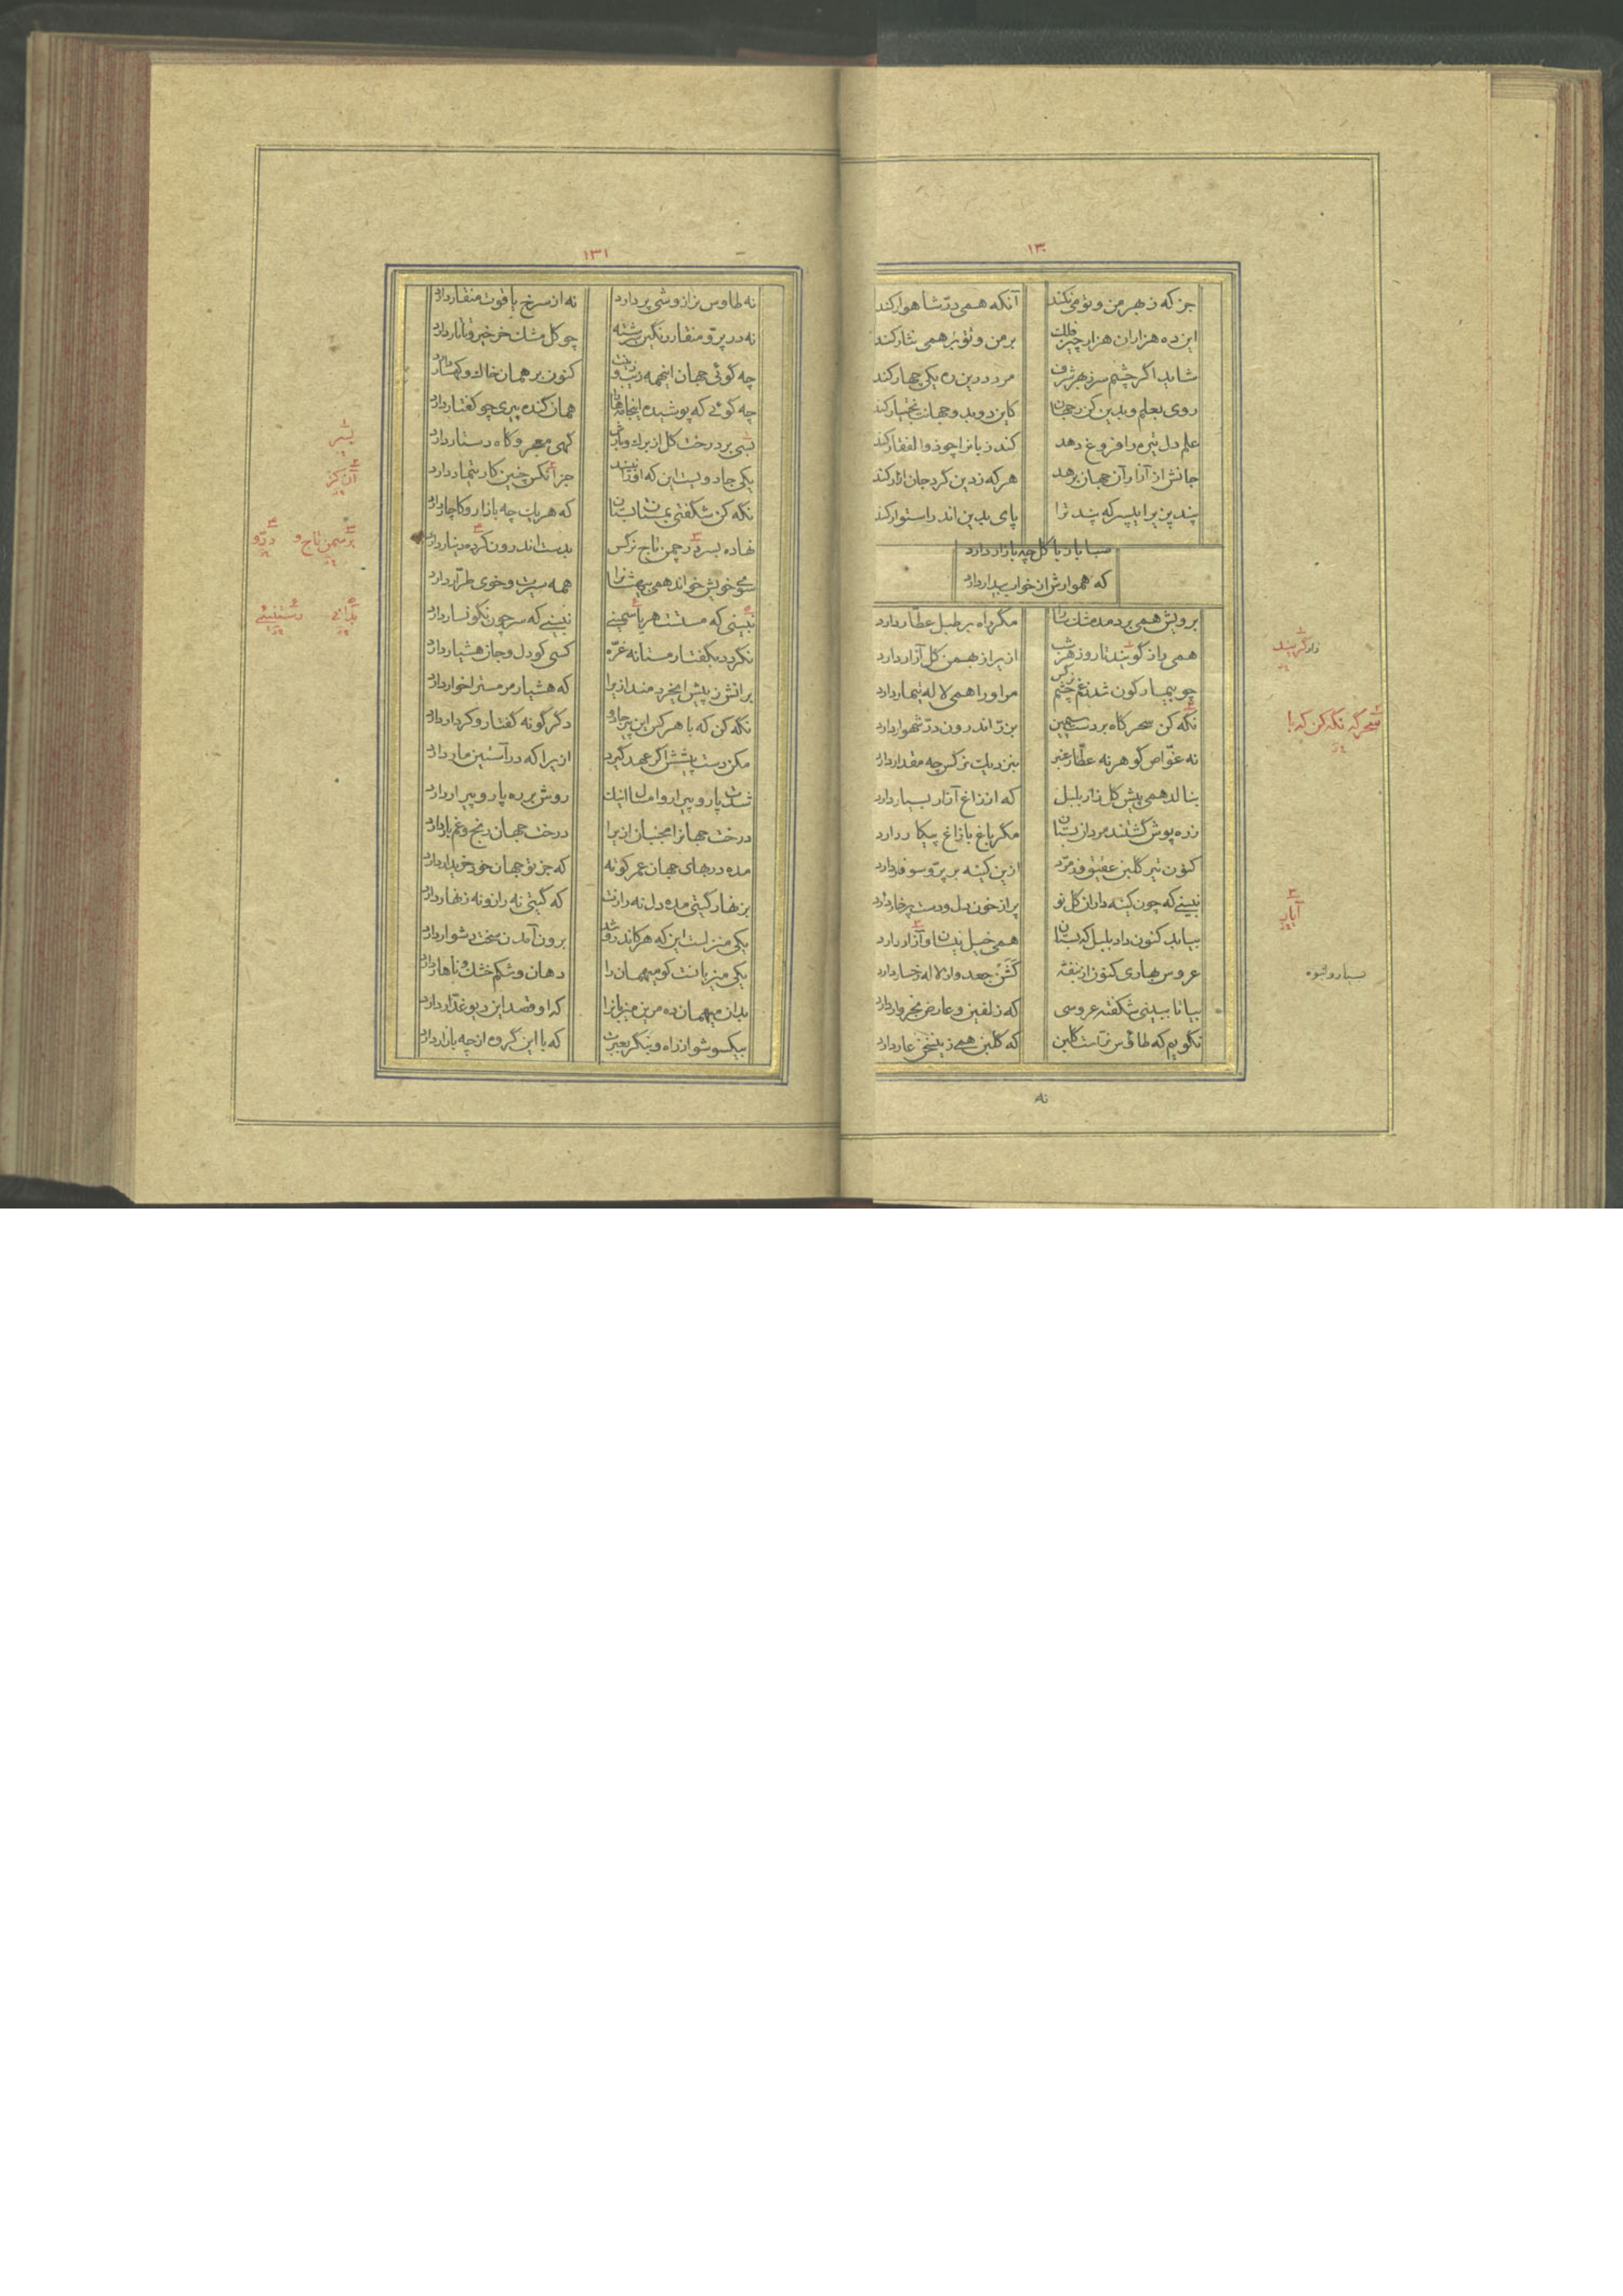 ۱۳۰
جز که ز بهر من و تو می نکند آنکه همی درّ شاهوار کند
این ده هزاران هزار چیز فلک بر من و تو بر همی نثار کند
شاید اگر چشم سر ز بهر شرف مرد درین ره یکی چهار کند
روی بعلم و بدین کن ز جهان کاین دو بدو جهان بختیار کند
علم دل تیره را فروغ دهد کند زبان را چو ذوالفقار کند
جانش از آزار آن جهان برهد هر که ز دین گرد جان ازار کند
پند پذیر ای پسر که پند ترا پای بدین اندر استوار کند
صبا باز با گل چه بازار دارد
که هموارش از خواب بیدار دارد
برویش همی بر دمد مشک سارا مگر راه بر طبل عطار دارد
همی راز گویند تا روز هر شب ازیرا ز بهمن گل آزار دارد
چو بیمارگون شد ز غم چشم نرگس مر او را همی لاله تیمار دارد
نگه کن سحرگاه بر دست سیمین بزرّ اندرون درّ شهوار دارد
نه غوّاص گوهر نه عطّار عنبر بنزدیک نرگس چه مقدار دارد
بنالد همی پیش گلزار بلبل که از زاغ آزار بسیار دارد
زره پوش گشتند مردان بستان مگر باغ با زاغ پیکار دارد
کنون تیر گلبن عقیق و زمرّد ازین کینه بر پرّ و سوفار دارد
نبینی که چون کینه داران گل نو پر از خون دل و دست پر خار دارد
بیابد کنون داد بلبل که بستان همی خیل نیسان و آزار دارد
عروس بهاری کنون از بنفشه گشن جعد وز لاله رخسار دارد
بیا تا ببینی شگفته عروسی که زلفین و عارض بخروار دارد
نگویم که طاوس نر است گلبن که گلبن همی زین سخن عار دارد
نه
زار گریند
سحرگه نگه کن که با
آبان
بسیار و انبوه
۱۳۱
نه طاوس نر از وشی پر دارد نه از سرخ یاقوت منقار دارد
نه در پرّ و منقار رنگین سرشته چو گل مشک خرخیر و تاتار دارد
چه گوئی جهان اینهمه زیب و زینت کنون بر همان خاک و کهسار دارد
چه گوئی که پوشیده این جامه ها را همان گنده پیری چو کفتار دارد
گهی معجر و گاه دستار دارد
یکی جادویست این که او را نبیند جز آنکس چنین کار تیمار دارد
نگه کن شگفتی بمستان بستان که هر یک چه بازار و کاچار دارد
نهاده بسر در چمن تاج نرگس بدست اندرون کرده دینار دارد
سوی خویش خواند همی بیهشان را همه سیرت و خوی طرّار دارد
نبینی که مستست هر یاسمینی نبینی که سر چون نگونسار دارد
نگردد بگفتار مستانه غرّه کسی کو دل و جان هشیار دارد
برانش ز پیش ای خردمند ازیرا که هشیار مر مست را خوار دارد
نگه کن که با هر کس این پیر جادو دگرگونه گفتار و کردار دارد
مکن دست پیشش اگر عهد گیرد ازیرا که در آستین مار دارد
شدت پار و پیرار و امسالت اینک روش بر ره پار و پیرار دارد
درخت جهان را مجنبان ازیرا درخت جهان رنج و غم بار دارد
مده در بهای جهان عمر کوته که جز تو جهان خود خریدار دارد
بزنهار گیتی مده دل نه رازت که گیتی نه راز و نه زنهار دارد
یکی منزلست این که هر کاندرو شد برون آمدن سخت دشوار دارد
یکی میزبانست کو میهمان را دهان و شکم خشک و ناهار دارد
بدان میهمان ده مرین میزبان را که او قصد این دیو غدّار دارد
بیکسو شو از راه و بنگر بعبرت که با این گروه از چه بازار دارد
آن کز
بر سمن تاج و
بدانی